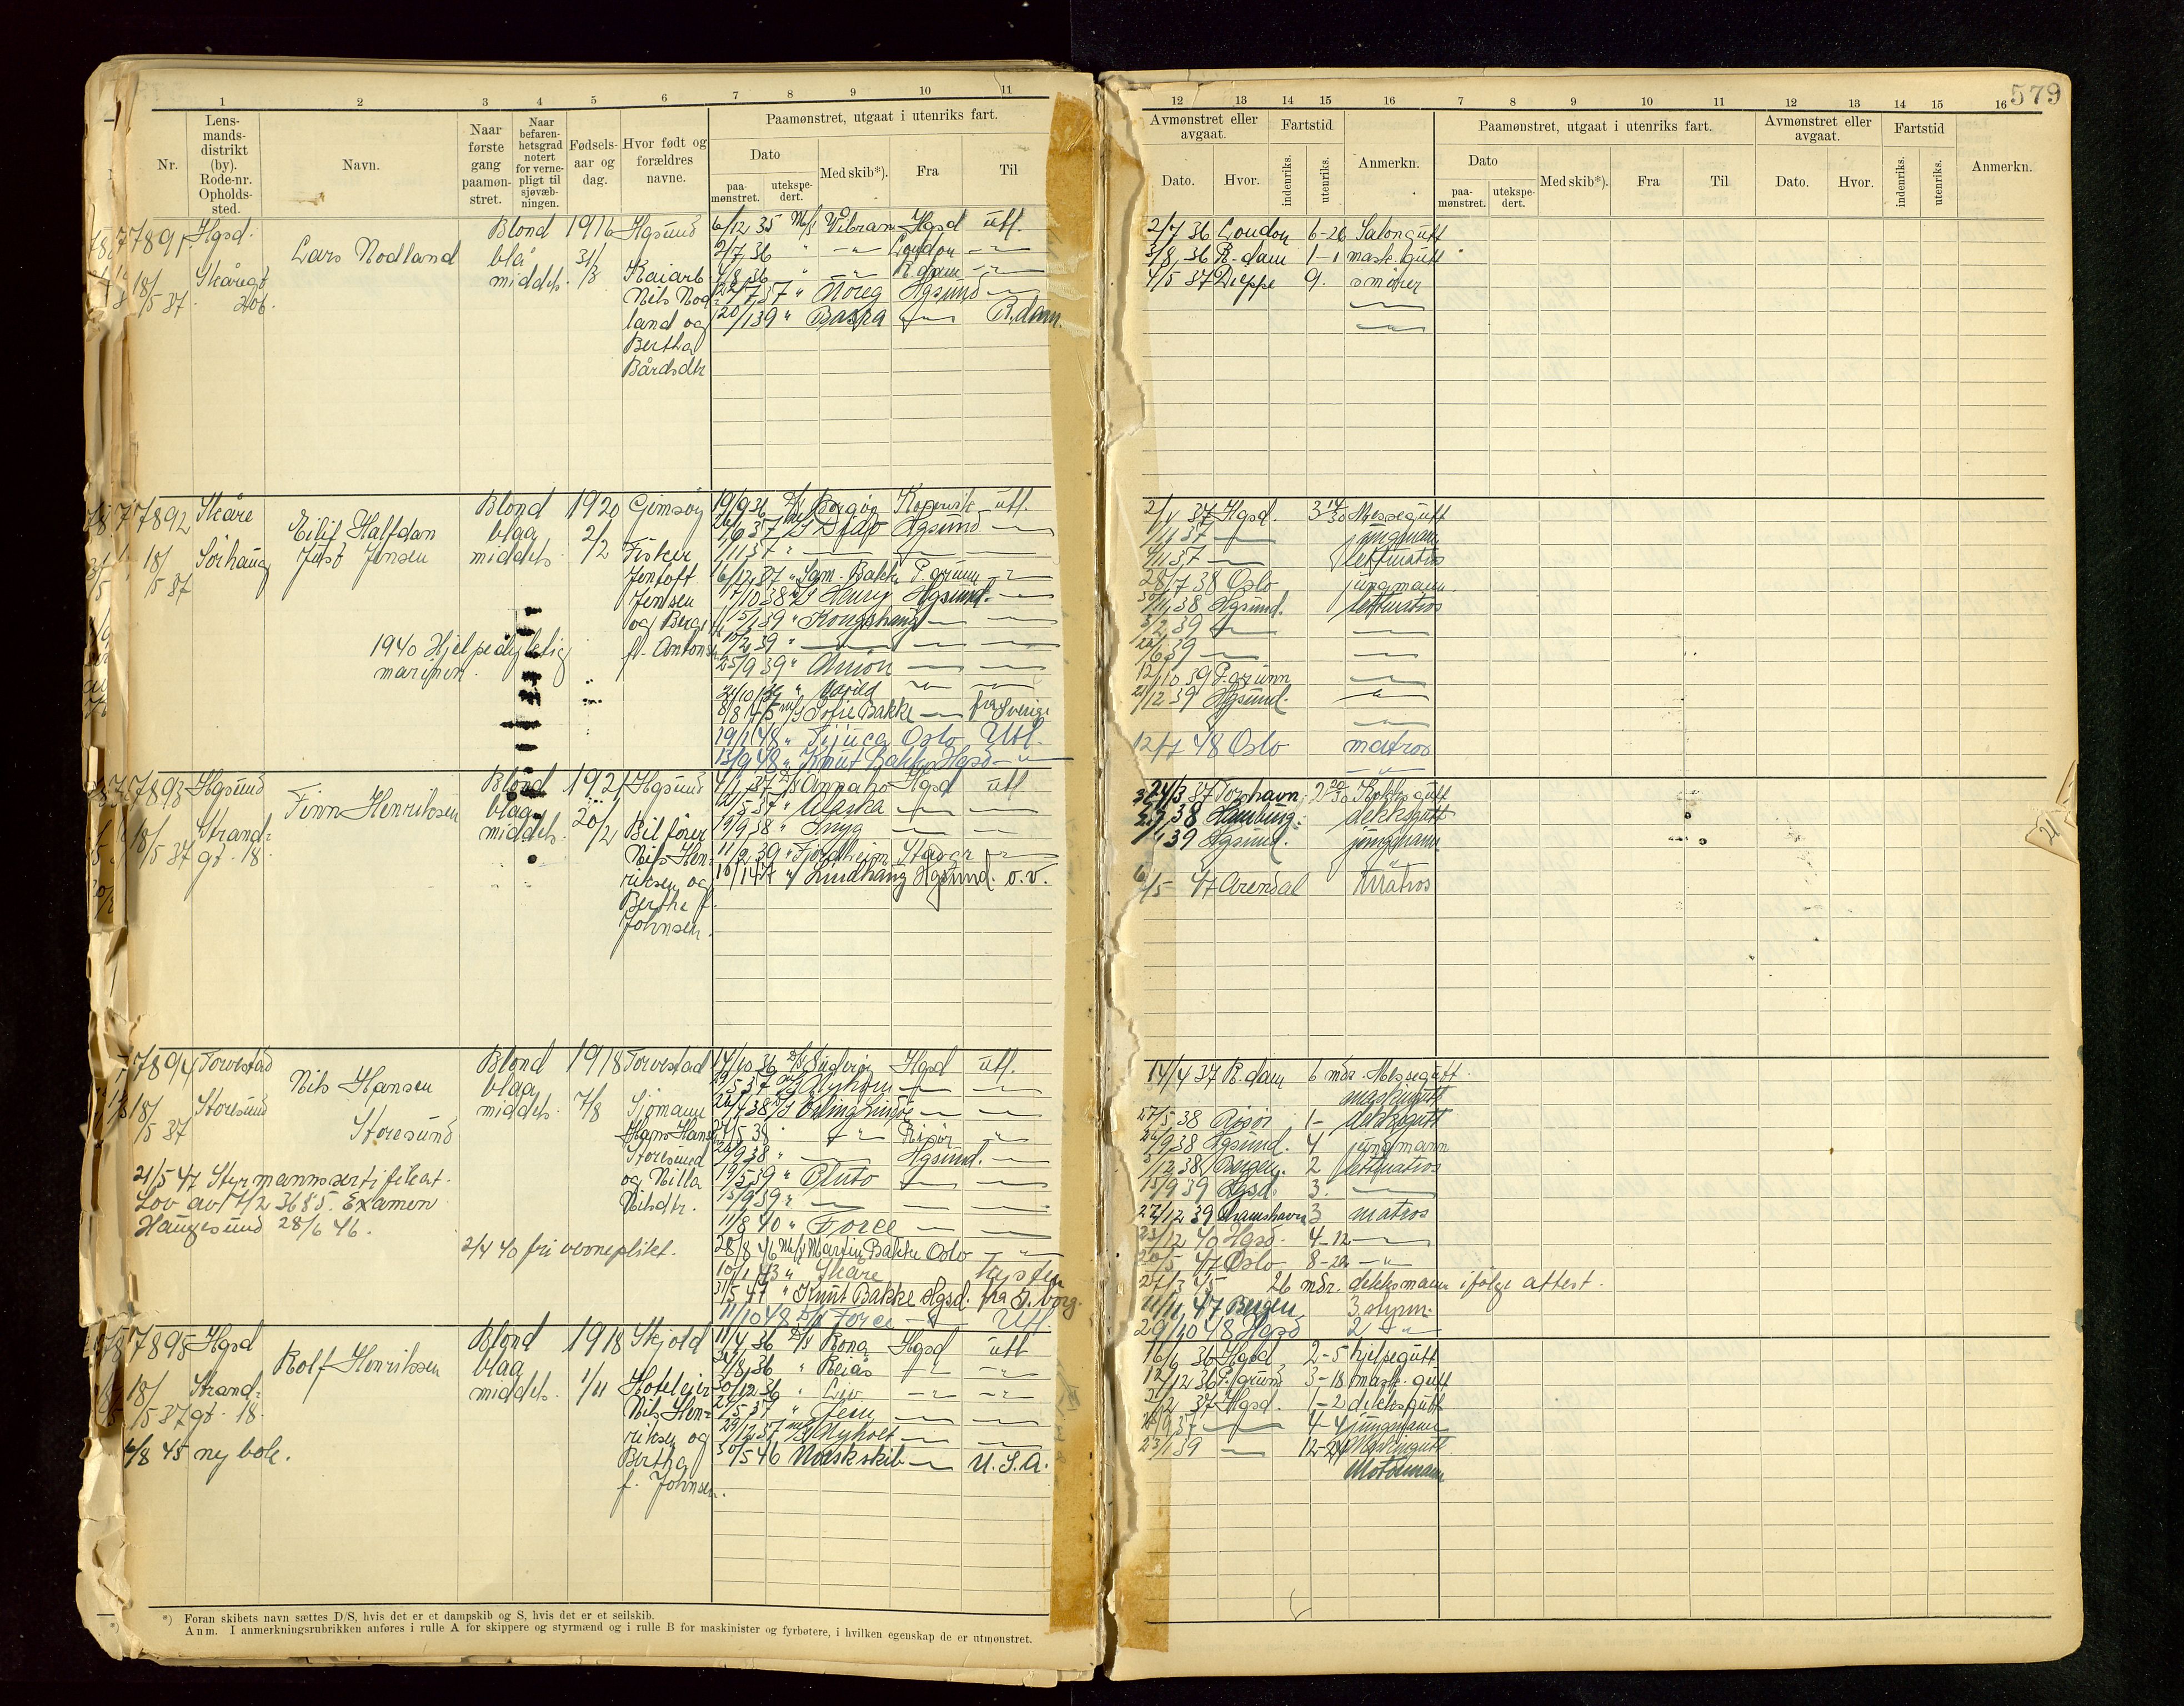 579
1 2 3 4 5 6 7 8 9 10 11
Nr.
Lens-
mands-
distrikt
(by).
Rode-nr.
Opholds-
sted.
Navn.
Naar
første
gang
paamøn-
stret.
Naar
befaren-
hetsgrad
notert
for verne-
pligt til
sjøvæb-
ningen.
Fødsels-
aar og
dag.
Hvor født og
forældres
navne.
Paamønstret, utgaat i utenriks fart.
Dato
paa-
mønstret.
utekspe-
dert.
Med skib*).
Fra
Til
12 13 14 15 16 7 8 9 10 11 12 13 14 15 16
Avmønstret eller
avgaat.
Dato.
Hvor.
Fartstid
indenriks.
utenriks.
Anmerkn.
Paamønstret, utgaat i utenriks fart.
Dato
paa-
mønstret.
utekspe-
dert.
Med skib*).
Fra
Til
Avmønstret eller
avgaat.
Dato.
Hvor.
Fartstid
indenriks.
utenriks.
Anmerkn.
7891 Hgsd.
18/5 37. Skåregt
206.
Lars Nodland
Blond
blå
middels
1916
31/3
Hgsund
Kaiarb
Nils Nod-
land og
Bertha
Bårdsdtr
6/12 35 M/S Vibran Hgsd utl.
2/7 36 " London
4/8 36 R.dam
22/7 37 " Noreg Hgsund
20/1 39 " Baspa R.dam.
2/7 36 London 6-26 Salongutt
3/8 36 R.dam 1-1 mask.gutt
4/5 37 Dieppe 9. smører
7892 Skåre
18/5 37 Sørhaug
Eilif Halfdan
Just Jensen
1940 Hjelpedyktig
marinen.
Blond
blaa
middels
1920
2/2
Gimsøy
Fisker
Jentoft
Jensen
og Berg
f. Antons
19/9 36 D/S Borgøy Kopervik utl.
Dido Hgsund
1/11 37
16/12 37 " Sam. Bakke P.grunn
1/10 38 D/S Henry Hgsund.
15/1 39 " Kongshaug
10/2 39 "
25/9 39 " Union
24/10 39 " Varild
8/8 45 m/S Sofie Bakke fra Sverige
19/1 48 " Tijuca Oslo Utl.
13/9 48 " Knut Bakke Hgsd
37 Hgsd. Messegutt
1/11 37 jungmann
4/11 37 lettmatros
28/7 38 Oslo jungmann
30/11 38 Hgsund. lettmatros
3/2 39
20/6 39
12/10 39 P.grunn
21/12 39 Hgsund.
12/7 48 Oslo matros
7893 Hgsund
18/5 37 Strand-
gt. 18.
Finn Henriksen
Blond
blaa
middels.
1921
20/2
Hgsund
Bilfører
Nils Hen-
riksen og
Berthe f.
Johnsen.
4/1 37 D/S Annaho Hgsd utl
12/5 37 " Alaska
19/9 38 " Snyg
11/2 39 " Fjordheim Stavgr
10/1 47 " Lindhaug Hgsund. o.v.
24/3 37 Torshavn Kokksgutt
38 Hamburg. dekksgutt
39 Hgsund. jungmann
6/5 47 Arendal Matros
7894 Torvestad
18/5 37 Storesund
Nils Hansen
Storesund
21/5 47 Styrmannssertifikat.
Lov av 17/2 36 § 5. Examen
Haugesund 28/6 46.
2/4 40 fri verneplikt.
Blond
blaa
middels.
1918
7/8
Torvestad
Sjømann
Hans Hansen
Storesund
og Nilla
Nilsdtr.
14/10 36 D/S Sudvig Hgsd utl.
19/5 37 m/S Nyhorn
26/4 38 D/S Erling Lindøe
27/5 38 Risør
26/9 38 " Hgsund.
19/5 39 " Pluto
15/9 39 "
11/8 40 " Force
28/8 46 M/S Martin Bakke Oslo
10/1 43 " Skåre kysten
31/5 47 " Knut Bakke Hgsd. fra G.borg.
11/10 48 D/S Force Utl.
14/4 37 R.dam 6 mdr. Messegutt
maskingutt
27/5 38 Risør 1- dekksgutt
26/9 38 Hgsund. 4 jungmann
12 38 Bergen. 2 lettmatros
15/9 39 Hgsd. 3.
27/12 39 Kramshavn 3 matros
23/12 40 Hgsd. 4-12
20/5 47 Oslo 8-22
27/3 45 26 mdr. dekksmann ifølge attest.
11/11 47 Bergen. 3. styrm.
29/10 48 Hgsd 2
7895 Hgsd
18/5 37 Strand-
gt. 18.
6/8 45 ny bok.
Rolf Henriksen
Blond
blaa
middels.
1918
1/11
Skjold
Hoteleier
Nils Hen-
riksen og
Bertha
f. Johnsen.
11/4 36 D/S Rona Hgsd utl
24/8 36 " Reias
30/12 36 " Liv
29/5 37 " Feu
29/12 37 m/S Nyholt
30/5 46 Norsk skib U.S.A.
16/6 36 Hgsd 2-5 hjelpegutt
12/12 36 P.grund 3-18 mask.gutt
2/2 37 Hgsd. 1-2 dekksgutt
28/9 37 4-4 jungmann
23/1 39 12-24 Maskingutt
Motormann
*) Foran skibets navn sættes D/S, hvis det er et dampskib og S, hvis det er et seilskib.
Anm. I anmerkningsrubrikken anføres i rulle A for skippere og styrmænd og i rulle B for maskinister og fyrbøtere, i hvilken egenskap de er utmønstret.